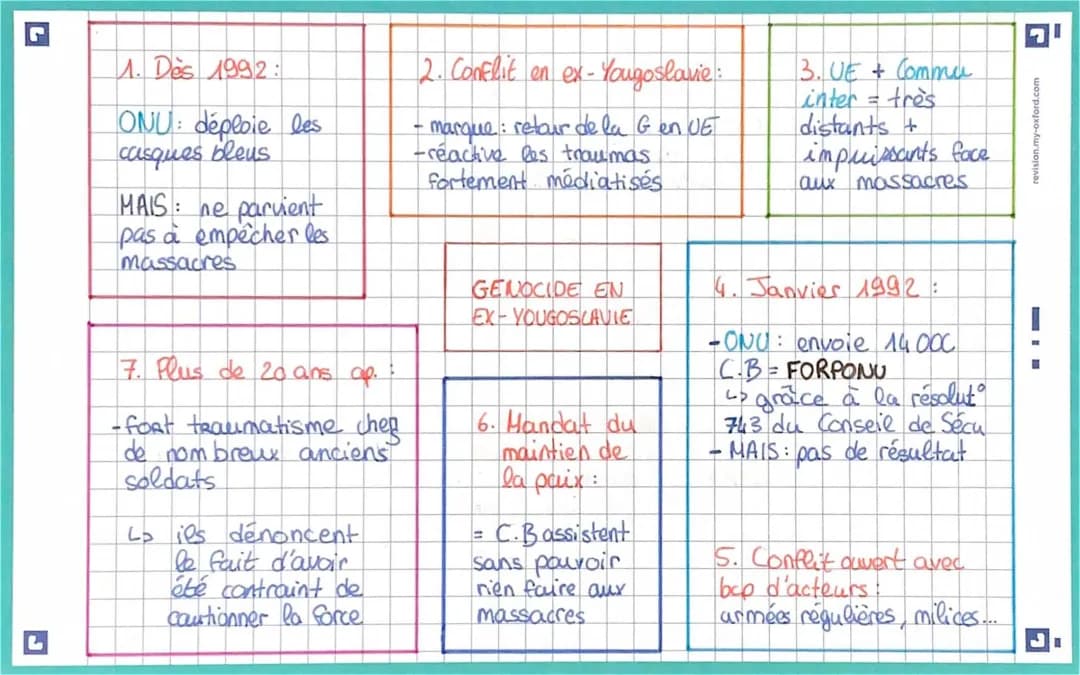 1. Dès 1992 :
ONU : déploie les
casques bleus
MAIS : ne parvient
pas à empêcher les
massacres
2. Conflit en ex-Yougoslavie :
- marque : retour de la G en UE
- réactive les traumas
fortement médiatisés
3. UE + Commu
inter = très
distants +
impuissants face
aux massacres
revision.my-oxford.com
GENOCIDE EN
EX-YOUGOSLAVIE
4. Janvier 1992 :
- ONU : envoie 14 000
C.B = FORPONU
↳ grâce à la résolut°
743 du Conseil de Sécu
- MAIS : pas de résultat
5. Conflit ouvert avec
bcp d'acteurs :
armées régulières, milices...
6. Mandat du
maintien de
la paix :
= C.B assistent
sans pouvoir
rien faire aux
massacres
7. Plus de 20 ans ap. :
- fort traumatisme chez
de nombreux anciens
soldats
↳ ils dénoncent
le fait d'avoir
été contraint de
cautionner la force